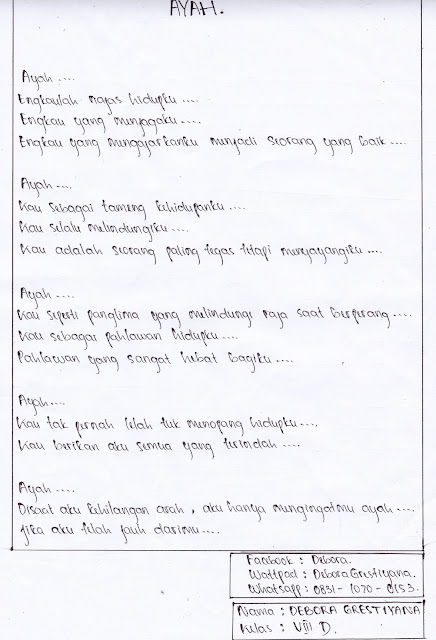 AYAH.
Ayah ....
Engkaulah nafas hidupku ....
Engkau yang menjagaku .....
Engkau yang mengajarkanku menjadi seorang yang baik ....
Ayah ....
Kau sebagai tameng kehidupanku ....
Kau selalu melindungiku ....
Kau adalah seorang paling tegas tetapi menyayangiku ....
Ayah ....
Kau seperti panglima yang melindungi raja saat berperang ....
Kau sebagai pahlawan hidupku ....
Pahlawan yang sangat hebat bagiku ....
Ayah ....
Kau tak pernah lelah tuk menopang hidupku ....
Kau berikan aku semua yang terindah ....
Ayah ....
Disaat aku kehilangan arah , aku hanya mengingatmu ayah ....
Jika aku telah jauh darimu ....
Facebook : Debora.
Wattpad : DeboraGrestiyana.
Whatsapp : 0831 - 1070 -
Nama : DEBORA GRESTIYANA
Kelas : VIII D.